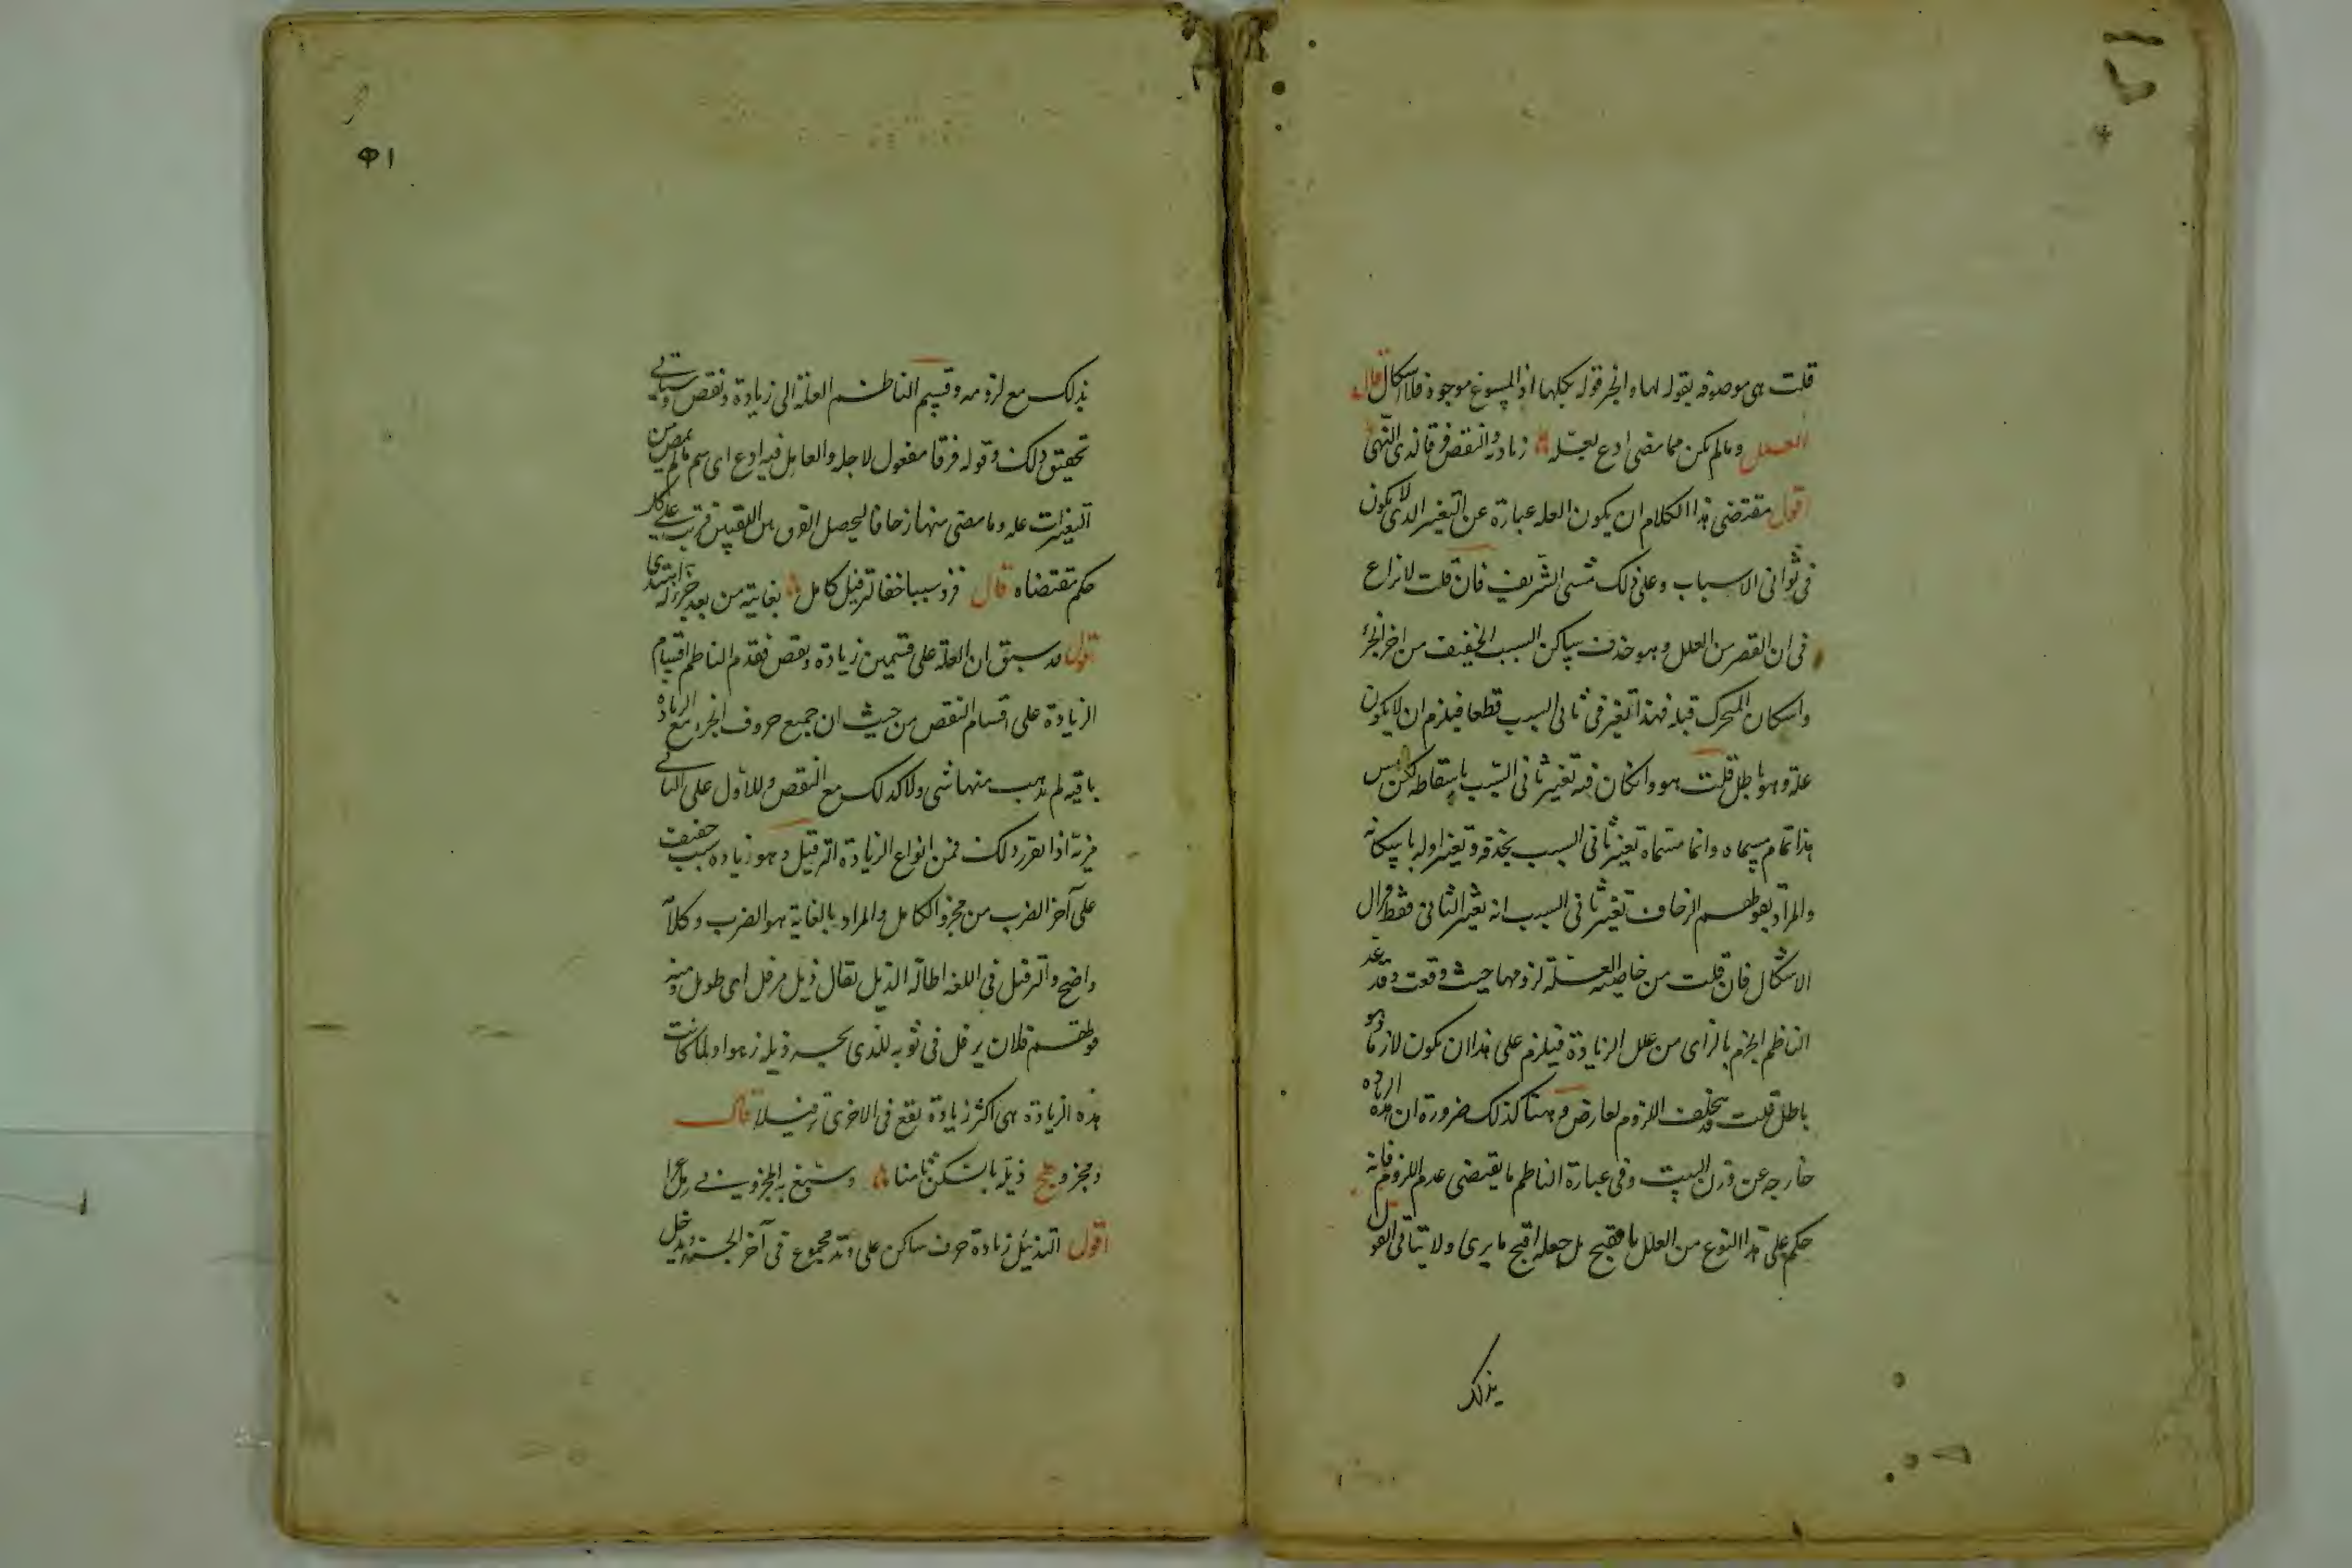 قلت هى موصوفه بقوله لها والخبر قوله يكلها اذ المسوغ موجود فلا اشكال قال
العلل ومالم يكن مما مضى ادع بعلة زيادة والنقص فرقا لذى النهى
اقول مقتضى هذا الكلام ان يكون العله عبارة عن التغير الذى لا يكون
فى ثوانى الاسباب وعلى ذلك مشى الشريف فان قلت لا نزاع
فى ان القصر من العلل وهو حذف ساكن السبب الخفيف من اخر الجزء
واسكان المتحرك قبله فهذا تغير فى ثانى السبب قطعا فيلزم ان لا يكون
علة وهو باطل قلت هو وان كان فيه تغيير ثانى السبب باسقاطه لكن ليس
هذا تمام مسماه وانما مسماه تغير ثانى السبب بحذفه وتغير اوله باسكانه
والمراد بقولهم الزحاف تغير ثانى السبب انه تغير الثانى فقط فزال
الاشكال فان قلت من خاصية العلة لزومها حيث وقعت وقد عد
الناظم الخزم بالزاى من علل الزيادة فيلزم على هذا ان يكون لازما وهو
باطل قلت قد يتخلف اللزوم لعارض وهنا كذلك ضرورة ان هذه الزيادة
خارجه عن وزن البيت وفى عبارة الناظم ما يقتضى عدم اللزوم فانه
حكم على هذا النوع من العلل بالقبح بل جعله اقبح ما يرى ولا يتاتى القول
بذلك
٥١
بذلك مع لزومه وقسم الناظم العلة الى زيادة ونقص وسياتى
تحقيق ذلك وقوله فرقا مفعول لاجله والعامل فيه ادع اى سم مالم يمض من
التغيرات عله وما مضى منها زحافا ليحصل الفرق بين اللقبين فرتب على كل
حكم مقتضاه قال فزد سببا خفا لترفيل كامل بغايته من بعد جزء له اهتدى
اقول قد سبق ان العلة على قسمين زيادة ونقص فقدم الناظم اقسام
الزيادة على اقسام النقص من حيث ان جميع حروف الجزء مع الزيادة
باقيه لم يذهب منها شى ولا كذلك مع النقص وللاول على الثانى
مزية اذا تقرر ذلك فمن انواع الزيادة الترفيل وهو زيادة سبب خفيف
على آخر الضرب من مجزو الكامل والمراد بالغاية هو الضرب وكلامه
واضح والترفيل فى اللغه اطالة الذيل يقال ذيل مرفل اى طويل ومنه
قولهم فلان يرفل فى ثوبه للذى يجر ذيله زهوا ولما كانت
هذه الزيادة هى اكثر زيادة تقع فى الاخر سمى ترفيلا قال
ومجزو هج ذيله بالسكن ثامنا وسبغ به المجزو فى رمل عرا
اقول التذييل زيادة حرف ساكن على وتد مجموع فى آخر الجزء ويدخل